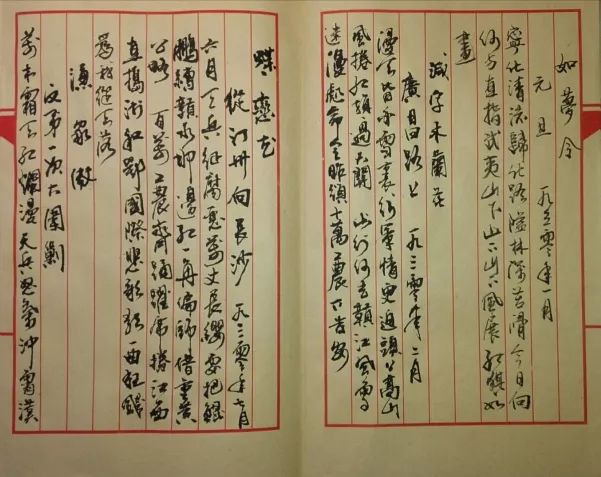 如夢令
元旦 一九三零年一月
寧化清流歸化路隘林深苔滑今日向
何方直指武夷山下山下山下風展紅旗如
畫
減字木蘭花
廣昌路上 一九三零年二月
漫天皆白雪裏行軍情更迫頭上高山
風捲紅旗過大關 此行何去贛江風雪
迷漫處命令昨頒十萬工農下吉安
蝶戀花
從汀州向長沙 一九三零年七月
六月天兵征腐惡萬丈長纓要把鯤
鵬縛贛水那邊紅一角偏師借重黃
公略 百萬工農齊踴躍席捲江西
直搗湘和鄂國際悲歌歌一曲狂飆
為我從天落
漁家傲
反第一次大圍剿
萬木霜天紅爛漫天兵怒氣沖霄漢